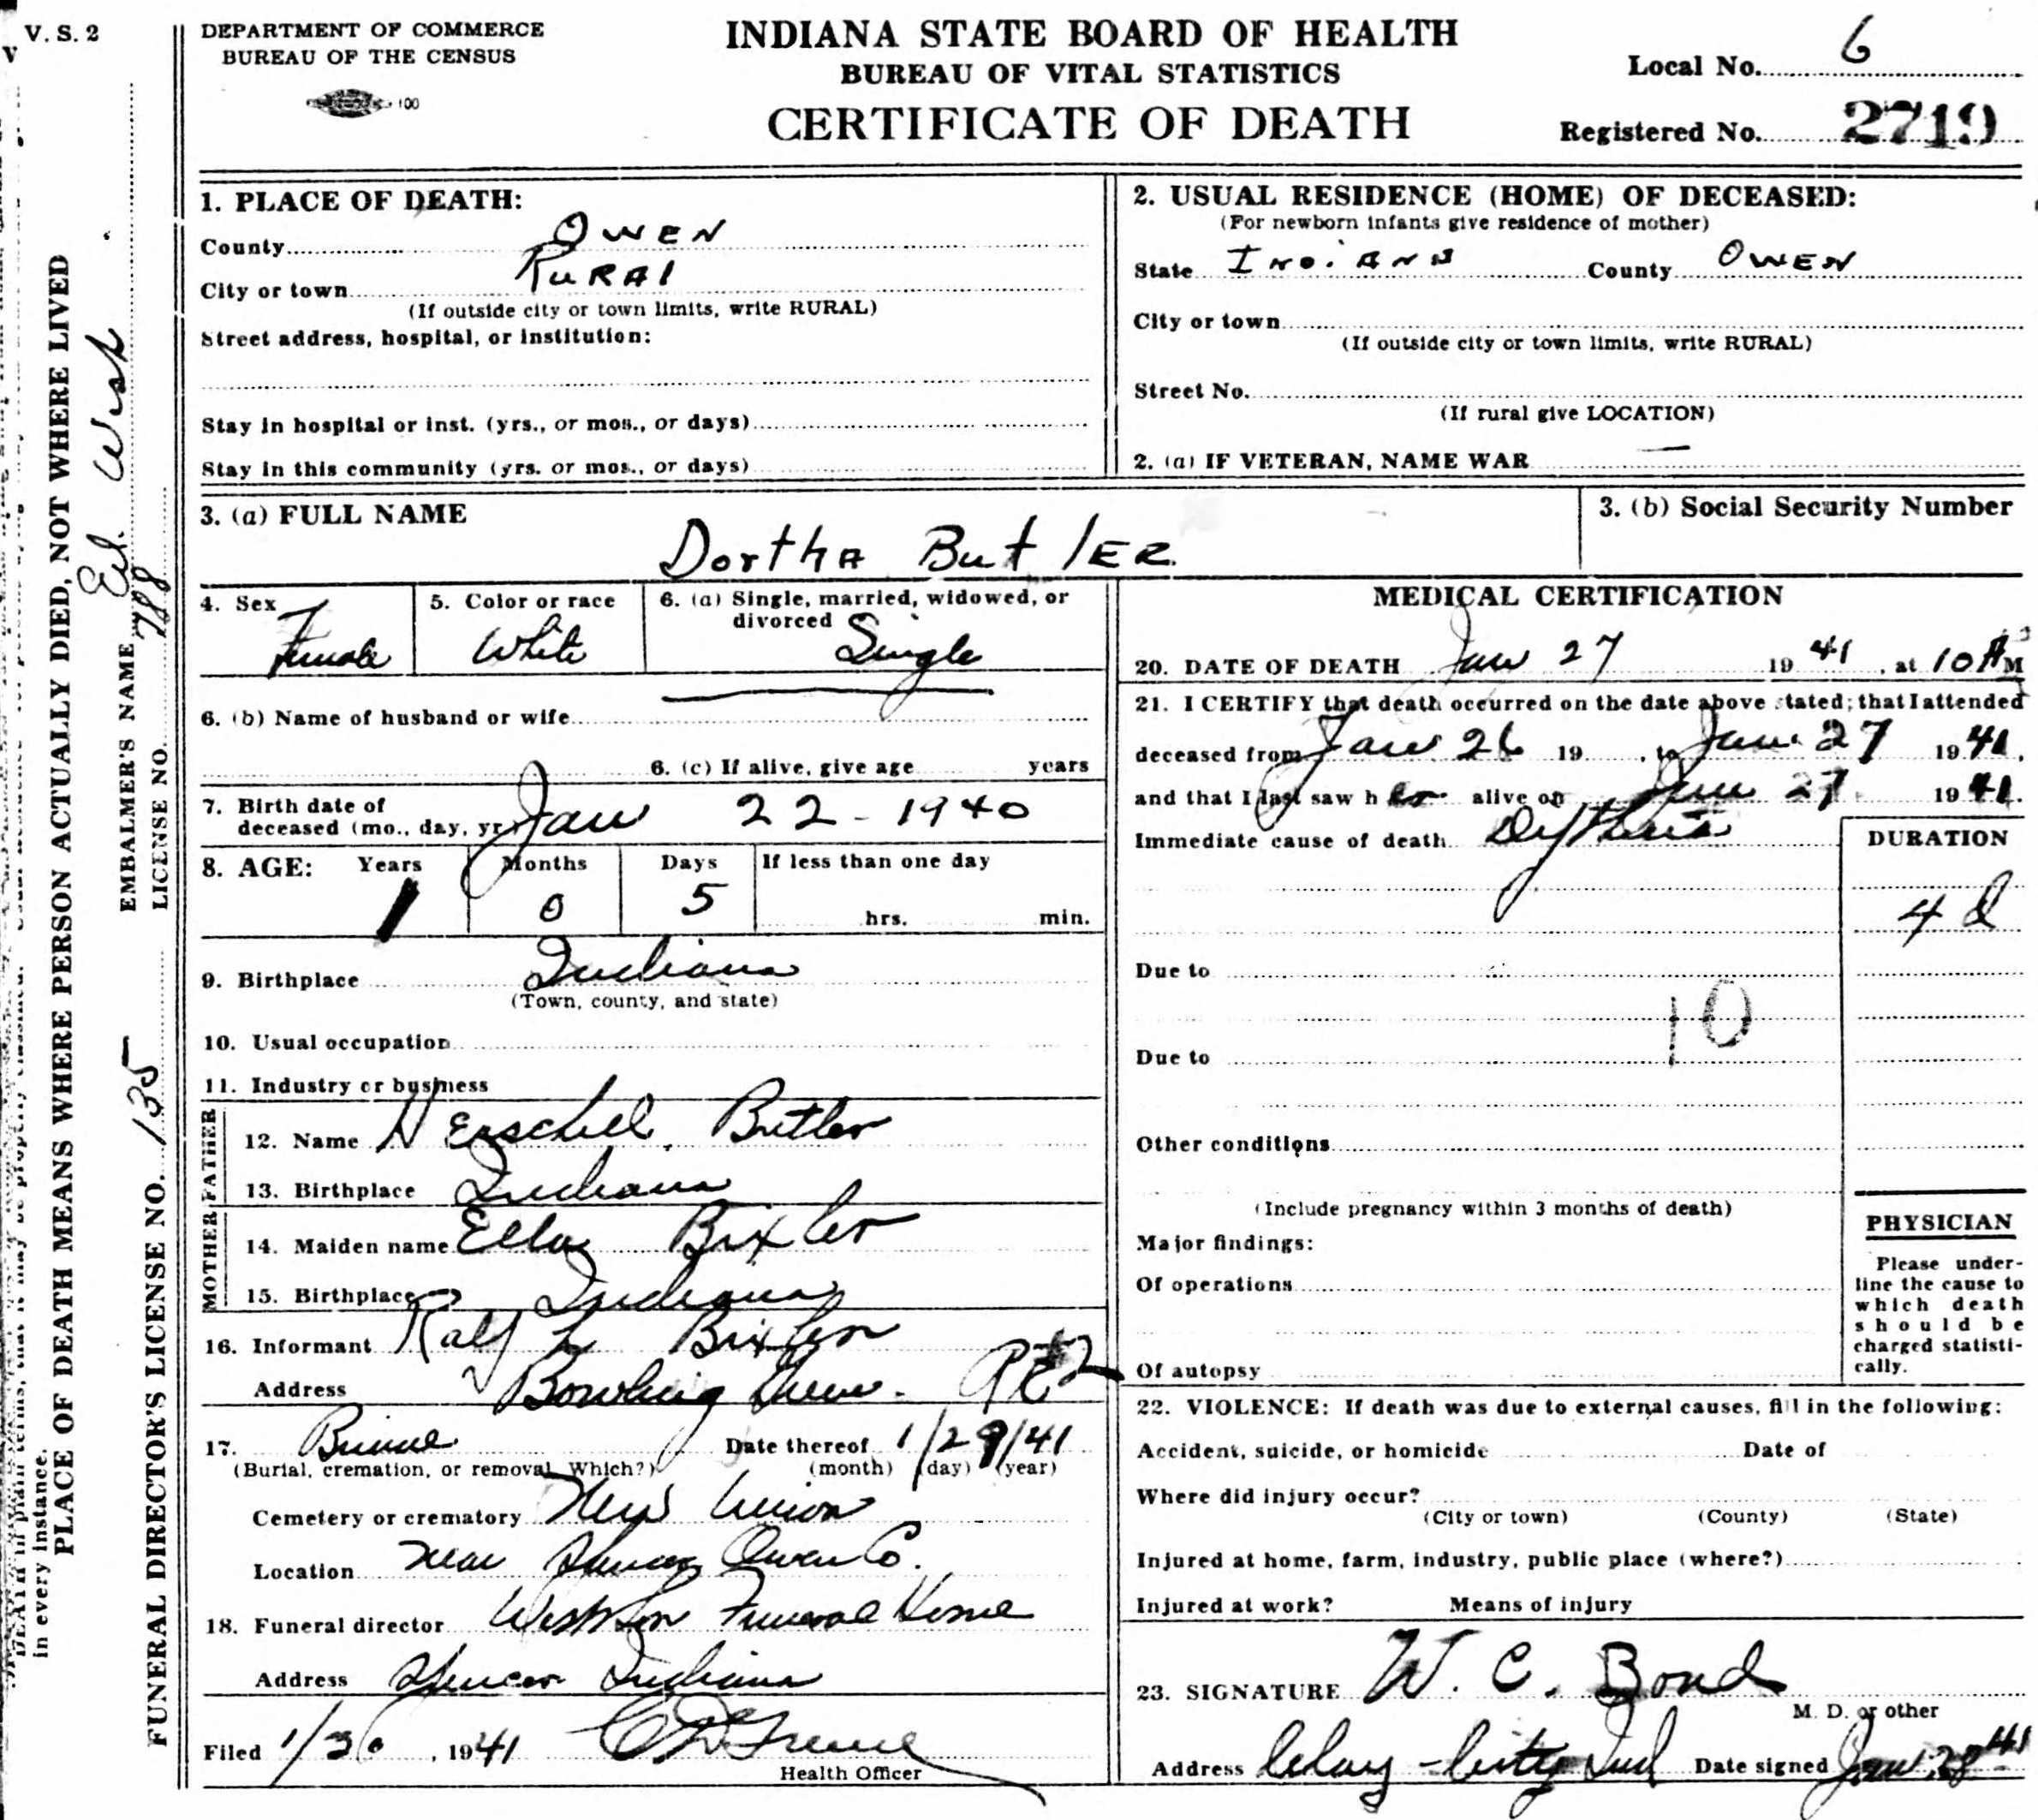 V. S. 2
DEPARTMENT OF COMMERCE
BUREAU OF THE CENSUS
100
INDIANA STATE BOARD OF HEALTH
BUREAU OF VITAL STATISTICS
CERTIFICATE OF DEATH
Local No. 6
Registered No. 2719
1. PLACE OF DEATH:
County OWEN
City or town RURAl
(If outside city or town limits, write RURAL)
Street address, hospital, or institution:
Stay in hospital or inst. (yrs., or mos., or days)
Stay in this community (yrs. or mos., or days)
2. USUAL RESIDENCE (HOME) OF DECEASED:
(For newborn infants give residence of mother)
State INDiANA County OWEN
City or town
(If outside city or town limits, write RURAL)
Street No.
(If rural give LOCATION)
2. (a) IF VETERAN, NAME WAR —
3. (a) FULL NAME Dortha Butler
3. (b) Social Security Number
4. Sex Female
5. Color or race White
6. (a) Single, married, widowed, or divorced Single
6. (b) Name of husband or wife
6. (c) If alive, give age years
7. Birth date of deceased (mo., day, yr.) Jan 22 - 1940
8. AGE: Years Months Days If less than one day
1 0 5 hrs. min.
9. Birthplace Indiana
(Town, county, and state)
10. Usual occupation
11. Industry or business
FATHER
12. Name Herschel Butler
13. Birthplace Indiana
MOTHER
14. Maiden name Ella Bixler
15. Birthplace Indiana
16. Informant Ralf L Bixler
Address Bowling Green.
17. Date thereof 1/29/41
(Burial, cremation, or removal. Which?) (month) (day) (year)
Cemetery or crematory New Union
Location near Spencer Owen Co.
18. Funeral director Funeral Home
Address Spencer Indiana
Filed 1/30, 1941
Health Officer
MEDICAL CERTIFICATION
20. DATE OF DEATH Jan 27 1941, at 10 AM
21. I CERTIFY that death occurred on the date above stated; that I attended
deceased from Jan 26 19 , to Jan 27 1941,
and that I last saw h er alive on Jan 27 1941.
Immediate cause of death
DURATION
4 d
Due to
10
Due to
Other conditions
(Include pregnancy within 3 months of death)
Major findings:
Of operations
Of autopsy
PHYSICIAN
Please under-
line the cause to
which death
should be
charged statisti-
cally.
22. VIOLENCE: If death was due to external causes, fill in the following:
Accident, suicide, or homicide Date of
Where did injury occur?
(City or town) (County) (State)
Injured at home, farm, industry, public place (where?)
Injured at work? Means of injury
23. SIGNATURE W. C. Bond
M. D. or other
Address Clay City Ind Date signed Jan 28 41
in every instance.
PLACE OF DEATH MEANS WHERE PERSON ACTUALLY DIED, NOT WHERE LIVED
EMBALMER'S NAME West
LICENSE NO. 788
FUNERAL DIRECTOR'S LICENSE NO. 135